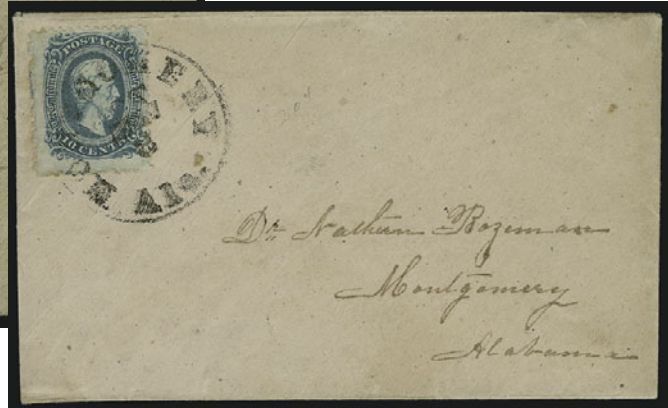 POSTAGE
10 CENTS
Ala.
Dr Nathan Bozeman
Montgomery
Alabama